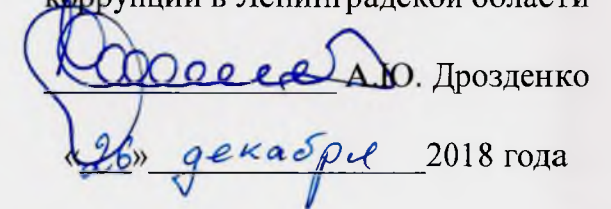 коррупции в Ленинградской области
А.Ю. Дрозденко
«26» декабря 2018 года